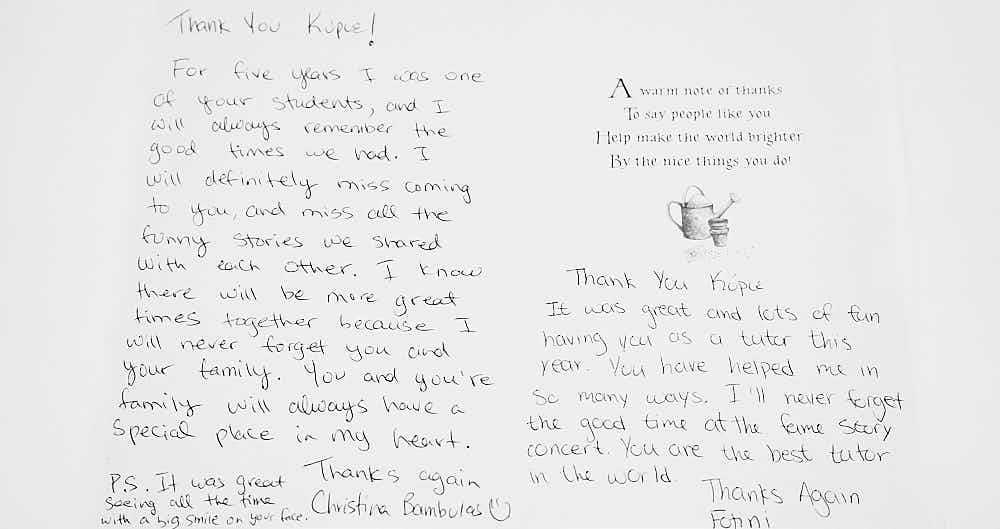 Thank You Kúpιε!
For five years I was one
of your students, and I
will always remember the
good times we had. I
will definitely miss coming
to you, and miss all the
funny stories we shared
with each other. I know
there will be more great
times together because I
will never forget you and
your family. You and you're
family will always have a
special place in my heart.
Thanks again
Christina Bambulas
P.S. It was great
seeing all the time
with a big smile on your face.
A warm note of thanks
To say people like you
Help make the world brighter
By the nice things you do!
Thank You Kúpιε
It was great and lots of fun
having you as a tutor this
year. You have helped me in
so many ways. I'll never forget
the good time at the fame story
concert. You are the best tutor
in the world.
Thanks Again
Fotini